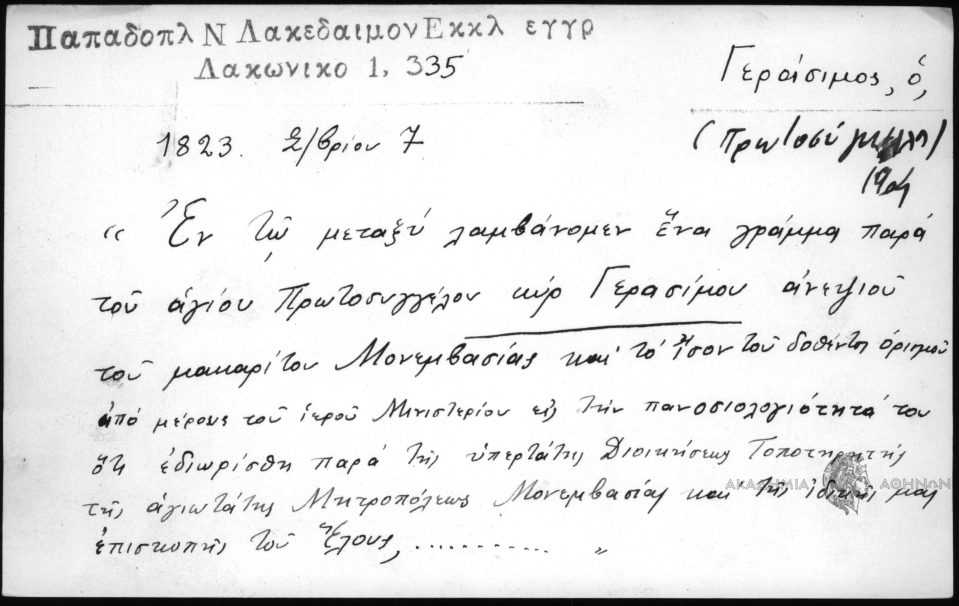 Παπαδοπλ Ν ΛακεδαιμονΕκκλ εγγρ
Λακωνικο 1, 335
Γεράσιμος, ὁ,
1823. 2/βρίου 7
“ Ἐν τῷ μεταξὺ λαμβάνομεν ἕνα γράμμα παρὰ
τοῦ ἁγίου Πρωτοσυγγέλου κύρ Γερασίμου ἀνεψιοῦ
τοῦ μακαρίτου Μονεμβασίας καὶ τὸ ἴσον τοῦ δοθέντος ὁρισμοῦ
ἀπὸ μέρους τοῦ ἱεροῦ Μινιστερίου εἰς τὴν πανοσιολογιότητά του
ὅτι ἐδιωρίσθη παρὰ τῆς ὑπερτάτης Διοικήσεως Τοποτηρητής
τῆς ἁγιωτάτης Μητροπόλεως Μονεμβασίας καὶ τῆς ἰδικῆς μας
ἐπισκοπῆς τοῦ Ἕλους, ............ „
ΑΚΑΔΗΜΙΑ ΑΘΗΝΩΝ